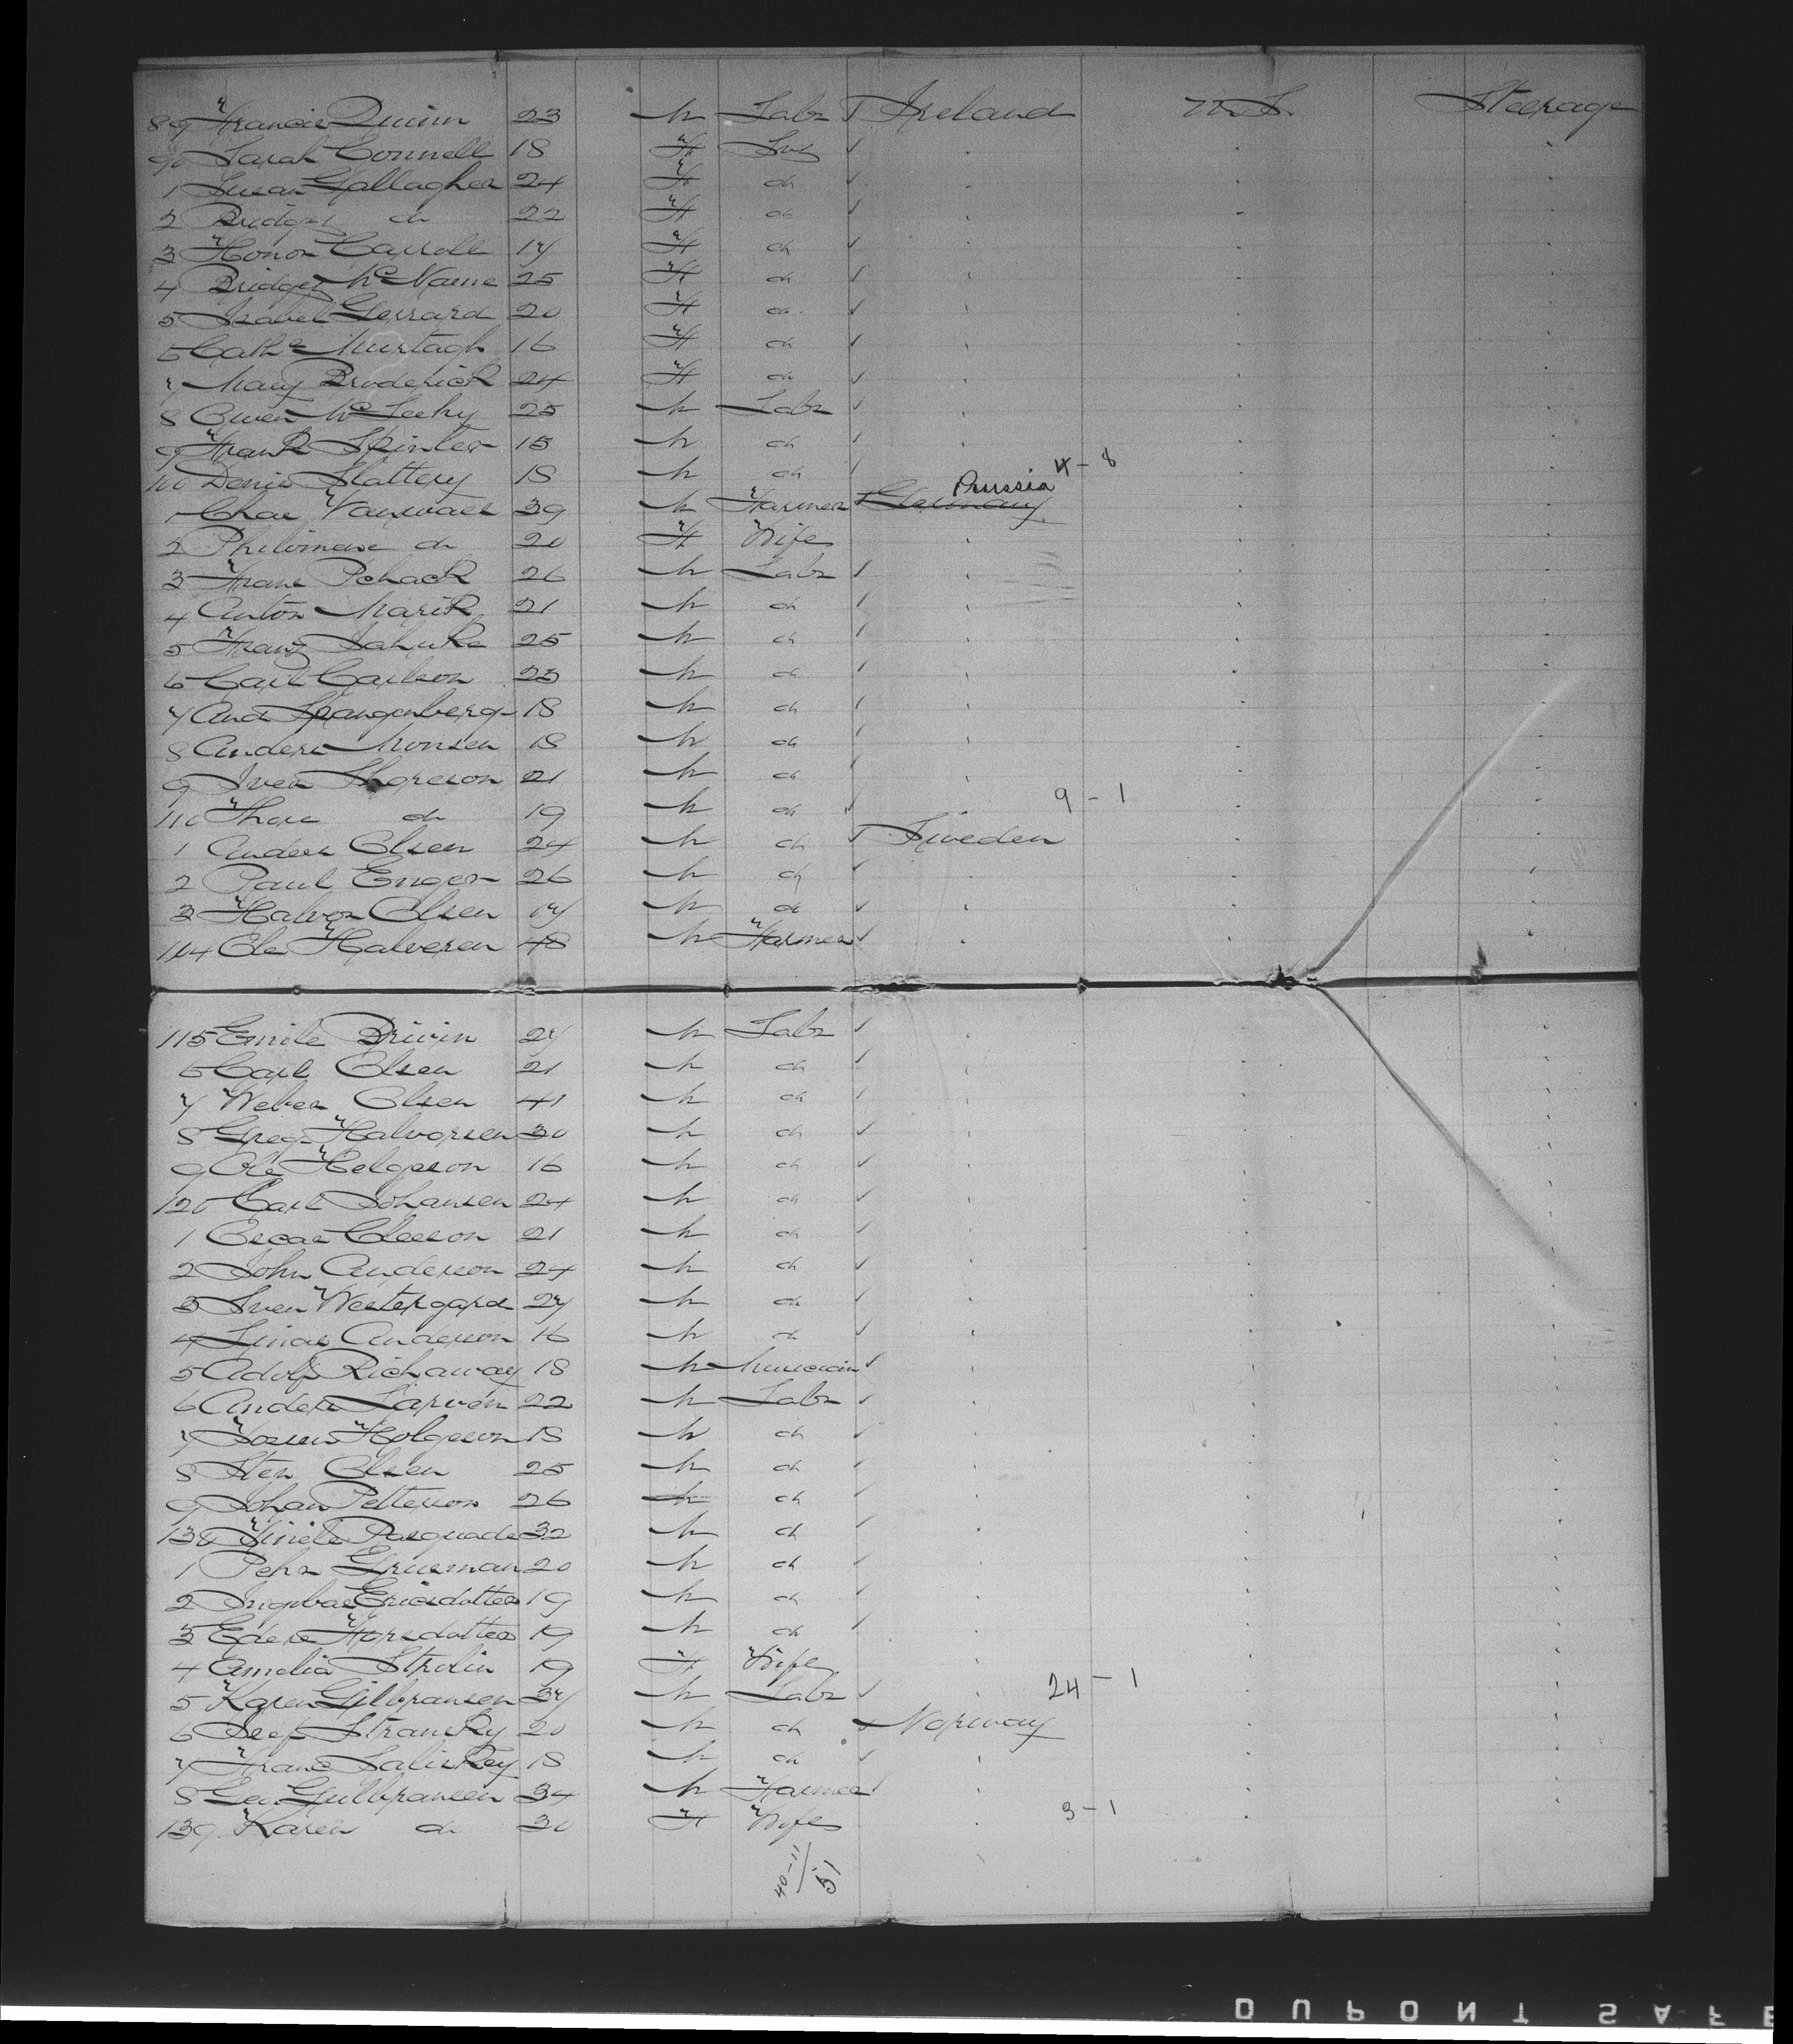 89 Francis Quinn 23 M Labr Ireland U.S. Steerage
90 Sarah Connell 18 F Svt
1 Susan Gallagher 24 F do
2 Bridget do 22 F do
3 Honor Carroll 17 F do
4 Bridget McName 25 F do
5 Isabel Gerrard 20 F do
6 Cathe Murtagh 16 F do
7 Mary Broderick 24 F do
8 Owen McSeehy 25 M Labr
9 Frank Spinler 15 M do
100 Denis Slattery 18 M do 4-8
Prussia
1 Chas Vanwaes 39 M Farmer Germany
2 Philomene do 20 F Wife
3 Frans Pchack 26 M Labr
4 Anton Marik 21 M do
5 Franz 25 M do
6 Carl Carlson 23 M do
7 And Spangenberg 18 M do
8 Anders Monsen 18 M do
9 Iver Thoreson 21 M do
110 Thore do 19 M do 9-1
1 Anders Olsen 24 M do Sweden
2 Paul Enger 26 M do
3 Halvor Olsen 17 M do
114 Ole Halversen 48 M Farmer
115 Emile Brivin 27 M Labr
6 Carl Olsen 21 M do
7 Weber Olsen 41 M do
8 Greg Halvorsen 30 M do
9 Ole Helgeson 16 M do
120 Carl Johansen 24 M do
1 Oscar Oleson 21 M do
2 John Anderson 24 M do
3 Sven Westergard 27 M do
4 Linas Anderson 16 M do
5 Adolf Richaway 18 M Musician
6 Anders Larven 22 M Labr
7 Holgeson 18 M do
8 Sten Olsen 25 M do
9 Johan Petterson 26 M do
130 Pasquade 32 M do
1 Pehr Grusman 20 M do
2 Ingebar Ericsdotter 19 M do
3 Horsdotter 19 M do
4 Amelia Strolin 19 F Wife
5 Karen Gilbransen 37 M Labr 24-1
6 Josef Stransky 20 M do Norway
7 Franc Saliskey 18 M do
8 Geo Gulbransen 34 M Farmer
139 Karen do 30 F Wife 3-1
40-11
51
DUPONT SAFE